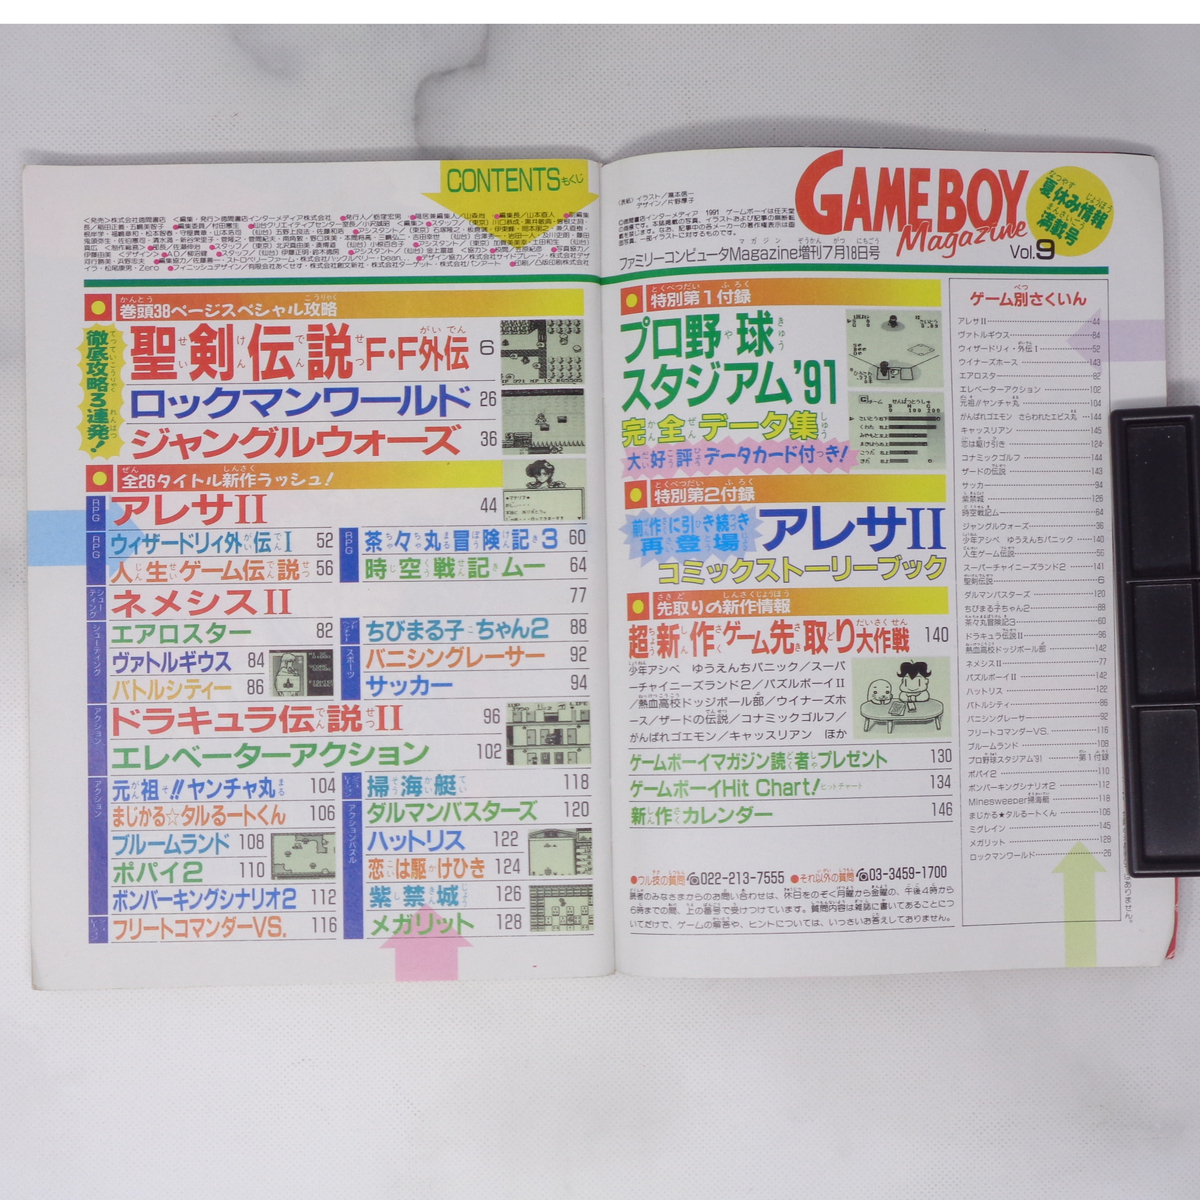 CONTENTS もくじ
巻頭38ページスペシャル攻略
徹底攻略3連発!
聖剣伝説 F・F外伝 6
ロックマンワールド 26
ジャングルウォーズ 36
全26タイトル新作ラッシュ!
RPG
アレサII 44
RPG
ウィザードリィ外伝I 52
人生ゲーム伝説 56
RPG
茶々丸冒険記3 60
時空戦記ムー 64
シューティング
ネメシスII 77
シューティング
エアロスター 82
ヴァトルギウス 84
バトルシティー 86
ちびまる子ちゃん2 88
スポーツ
バニシングレーサー 92
サッカー 94
アクション
ドラキュラ伝説II 96
エレベーターアクション 102
アクション
元祖!!ヤンチャ丸 104
まじかる☆タルるートくん 106
ブルームランド 108
ポパイ2 110
ボンバーキングシナリオ2 112
フリートコマンダーVS. 116
掃海艇 118
ダルマンバスターズ 120
アクションパズル
ハットリス 122
恋は駆けひき 124
紫禁城 126
メガリット 128
GAMEBOY
Magazine
Vol.9
夏休み情報
満載号
ファミリーコンピュータMagazine増刊7月18日号
特別第1付録
プロ野球
スタジアム'91
完全データ集
大好評データカード付き!
特別第2付録
前作に引き続き
再登場
アレサII
コミックストーリーブック
先取りの新作情報
超新作ゲーム先取り大作戦 140
少年アシベ ゆうえんちパニック/スーパ
ーチャイニーズランド2/パズルボーイII
/熱血高校ドッジボール部/ウイナーズホ
ース/ザードの伝説/コナミックゴルフ/
がんばれゴエモン/キャッスリアン ほか
ゲームボーイマガジン読者プレゼント 130
ゲームボーイHit Chart! ヒットチャート 134
新作カレンダー 146
●ウル技の質問 ☎022-213-7555 ●それ以外の質問 ☎03-3459-1700
読者のみなさまからのお問い合わせは、休日をのぞく月曜から金曜の、午後4時から
6時までの間、上の番号で受けつけています。質問内容は雑誌に書いてあることにつ
いてだけで、ゲームの解答や、ヒントについては、いっさいお答えしておりません。
ゲーム別さくいん
アレサII 44
ヴァトルギウス 84
ウィザードリィ・外伝I 52
ウイナーズホース 143
エアロスター 82
エレベーターアクション 102
元祖!!ヤンチャ丸 104
がんばれゴエモン さらわれたエビス丸 144
キャッスリアン 145
恋は駆け引き 124
コナミックゴルフ 144
ザードの伝説 143
サッカー 94
紫禁城 126
時空戦記ム— 64
ジャングルウォーズ 36
少年アシベ ゆうえんちパニック 140
人生ゲーム伝説 56
スーパーチャイニーズランド2 141
聖剣伝説 6
ダルマンバスターズ 120
ちびまる子ちゃん2 88
茶々丸冒険記3 60
ドラキュラ伝説II 96
熱血高校ドッジボール部 142
ネメシスII 77
パズルボーイII 142
ハットリス 122
バトルシティ 86
バニシングレーサー 92
フリートコマンダーVS. 116
ブルームランド 108
プロ野球スタジアム'91 第1付録
ポパイ2 110
ボンバーキングシナリオ2 112
Minesweeper掃海艇 118
まじかる★タルるートくん 106
ミグレイン 145
メガリット 128
ロックマンワールド 26